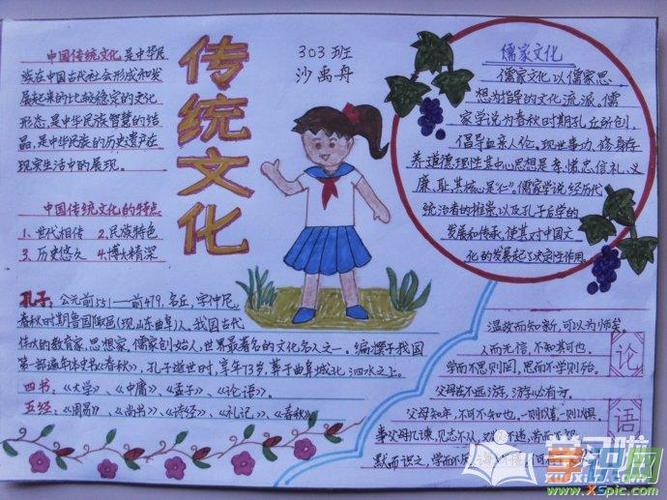 传统文化
303班
沙禹舟
中国传统文化是中华民
族在中国古代社会形成和发
展起来的比较稳定的文化
形态,是中华民族智慧的结
晶,是中华民族的历史遗产在
现实生活中的展现。
中国传统文化的特点
1、世代相传 2、民族特色
3、历史悠久 4、博大精深
儒家文化
儒家文化以儒家思
想为指导的文化流派。儒
家学说为春秋时期孔丘所创,
倡导血亲人伦、现世事功、修身存
养、道德理性其中心思想是孝悌忠信礼义
廉耻,其核心是“仁”。儒家学说经历代
统治者的推崇,以及孔子后学的
发展和传承,使其对中国文
化的发展起了决定性作用
孔子:公元前551—前479,名丘,字仲尼,
春秋时期鲁国陬邑(现山东曲阜)人,我国古代
伟大的教育家,思想家,儒家创始人,世界最著名的文化名人之一。编撰了我国
第一部编年体史书《春秋》,孔子逝世时,享年73岁,葬于曲阜城北泗水之上。
四书:《大学》、《中庸》、《孟子》、《论语》。
五经:《周易》、《尚书》、《诗经》、《礼记》、《春秋》
论语
温故而知新,可以为师矣。
人而无信,不知其可也。
学而不思则罔,思而不学则殆。
父母在不远游,游必有方。
父母之年,不可不知也,一则以喜,一则以惧
事父母几谏,见志不从,又敬不违,劳而不怨
默而识之,学而不
学识网
www.xspic.com